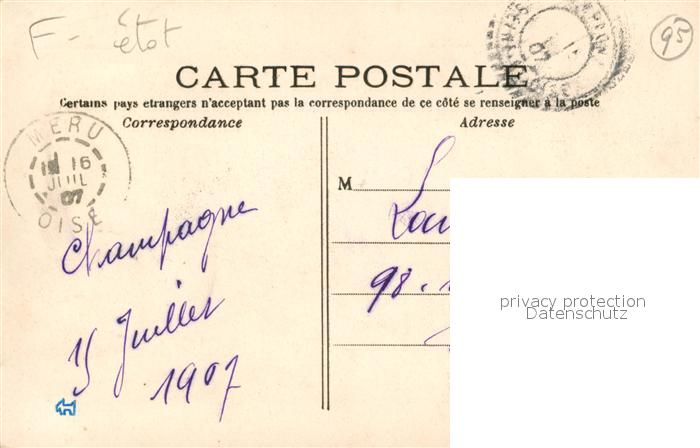 F - étot
95
CARTE POSTALE
Certains pays etrangers n'acceptant pas la correspondance de ce côté se renseigner à la poste
Correspondance
Adresse
MERU
16
JUIL
07
OISE
M
Champagne
15 Juillet
1907
98.
privacy protection
Datenschutz